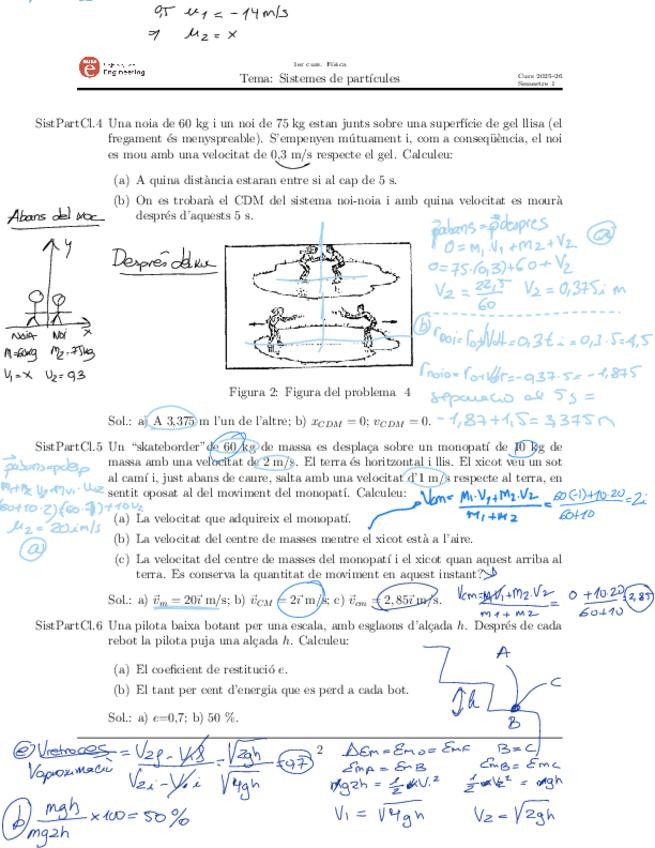 95 u1 = -14m/s
→ u2 = x
Engineering
1er curs. Física
Tema: Sistemes de partícules
Curs 2025-26
Semestre 1
SistPartCl.4 Una noia de 60 kg i un noi de 75 kg estan junts sobre una superfície de gel llisa (el
fregament és menyspreable). S'empenyen mútuament i, com a conseqüència, el noi
es mou amb una velocitat de 0,3 m/s respecte el gel. Calculeu:
(a) A quina distància estaran entre si al cap de 5 s.
(b) On es trobarà el CDM del sistema noi-noia i amb quina velocitat es mourà
després d'aquests 5 s.
Abans del xoc
y
x
NOIA NOI
M1=60kg M2=75kg
V1=x V2=0,3
Després del xoc
pabans = pdespres
a
0 = m1 V1 + m2 + V2
0=75·(0,3)+60+V2
V2 = 22,5/60 V2 = 0,375i m
b
rnoi=r0+V0t=0,3t i=0,3·5=1,5
rnoia=r0+V0t=-0,37·5=-1,875
separacio al 5s =
-1,87+1,5=3,375m
Figura 2: Figura del problema 4
Sol.: a) A 3,375 m l'un de l'altre; b) xCDM = 0; vCDM = 0.
SistPartCl.5 Un "skateborder" de 60 kg de massa es desplaça sobre un monopatí de 10 kg de
massa amb una velocitat de 2 m/s. El terra és horitzontal i llis. El xicot veu un sot
al camí i, just abans de caure, salta amb una velocitat d'1 m/s respecte al terra, en
sentit oposat al del moviment del monopatí. Calculeu:
u2 = 20i m/s
a
Vcm = M1·V1+M2·V2/M1+M2 = 60(-1)+10·20/60+10 = 2i
(a) La velocitat que adquireix el monopatí.
(b) La velocitat del centre de masses mentre el xicot està a l'aire.
(c) La velocitat del centre de masses del monopatí i el xicot quan aquest arriba al
terra. Es conserva la quantitat de moviment en aquest instant?
Sol.: a) v⃗m = 20i⃗ m/s; b) v⃗CM = 2i⃗ m/s; c) v⃗cm = 2,85i⃗ m/s.
Vcm=M1V1+M2·V2/m1+m2 = 0+10·20/60+10 = 2,85
SistPartCl.6 Una pilota baixa botant per una escala, amb esglaons d'alçada h. Després de cada
rebot la pilota puja una alçada h. Calculeu:
(a) El coeficient de restitució e.
(b) El tant per cent d'energia que es perd a cada bot.
Sol.: a) e=0,7; b) 50 %.
A
C
h
B
2
e Vretroces/Vaproximació = V2f - V1f/V2i - V1i = √2gh/√4gh = 0,7
ΔEm = Em0 = Emf B=C
EmA = EmB EmB = EmC
mg2h = 1/2 mV1² 1/2 mV2² = mgh
V1 = √4gh V2 = √2gh
b mgh/mg2h ×100 = 50%